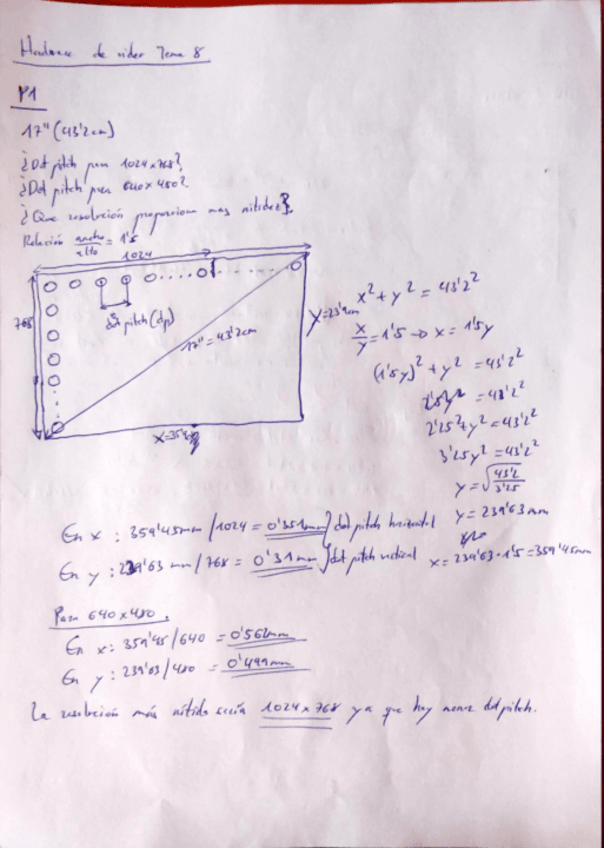 Hardware de vídeo Tema 8
P1
17" (43'2cm)
¿Dot pitch para 1024x768?
¿Dot pitch para 640x480?
¿Que resolución proporciona mas nitidez?
Relación ancho/alto = 1'5
1024
768
dot pitch (dp)
17" = 43'2cm
x²+y² = 43'2²
x/y = 1'5 → x = 1'5y
(1'5y)² + y² = 43'2²
= 43'2²
2'25²+y² = 43'2²
3'25y² = 43'2²
y = √43'2/3'25
y = 239'63 mm
x = 239'63 · 1'5 = 359'45mm
En x : 359'45mm / 1024 = 0'351mm } dot pitch horizontal
En y : 239'63 mm / 768 = 0'31mm } dot pitch vertical
Para 640x480.
En x: 359'45/640 = 0'562mm
En y: 239'63/480 = 0'499mm
La resolución más nítida sería 1024x768 ya que hay menor dot pitch.